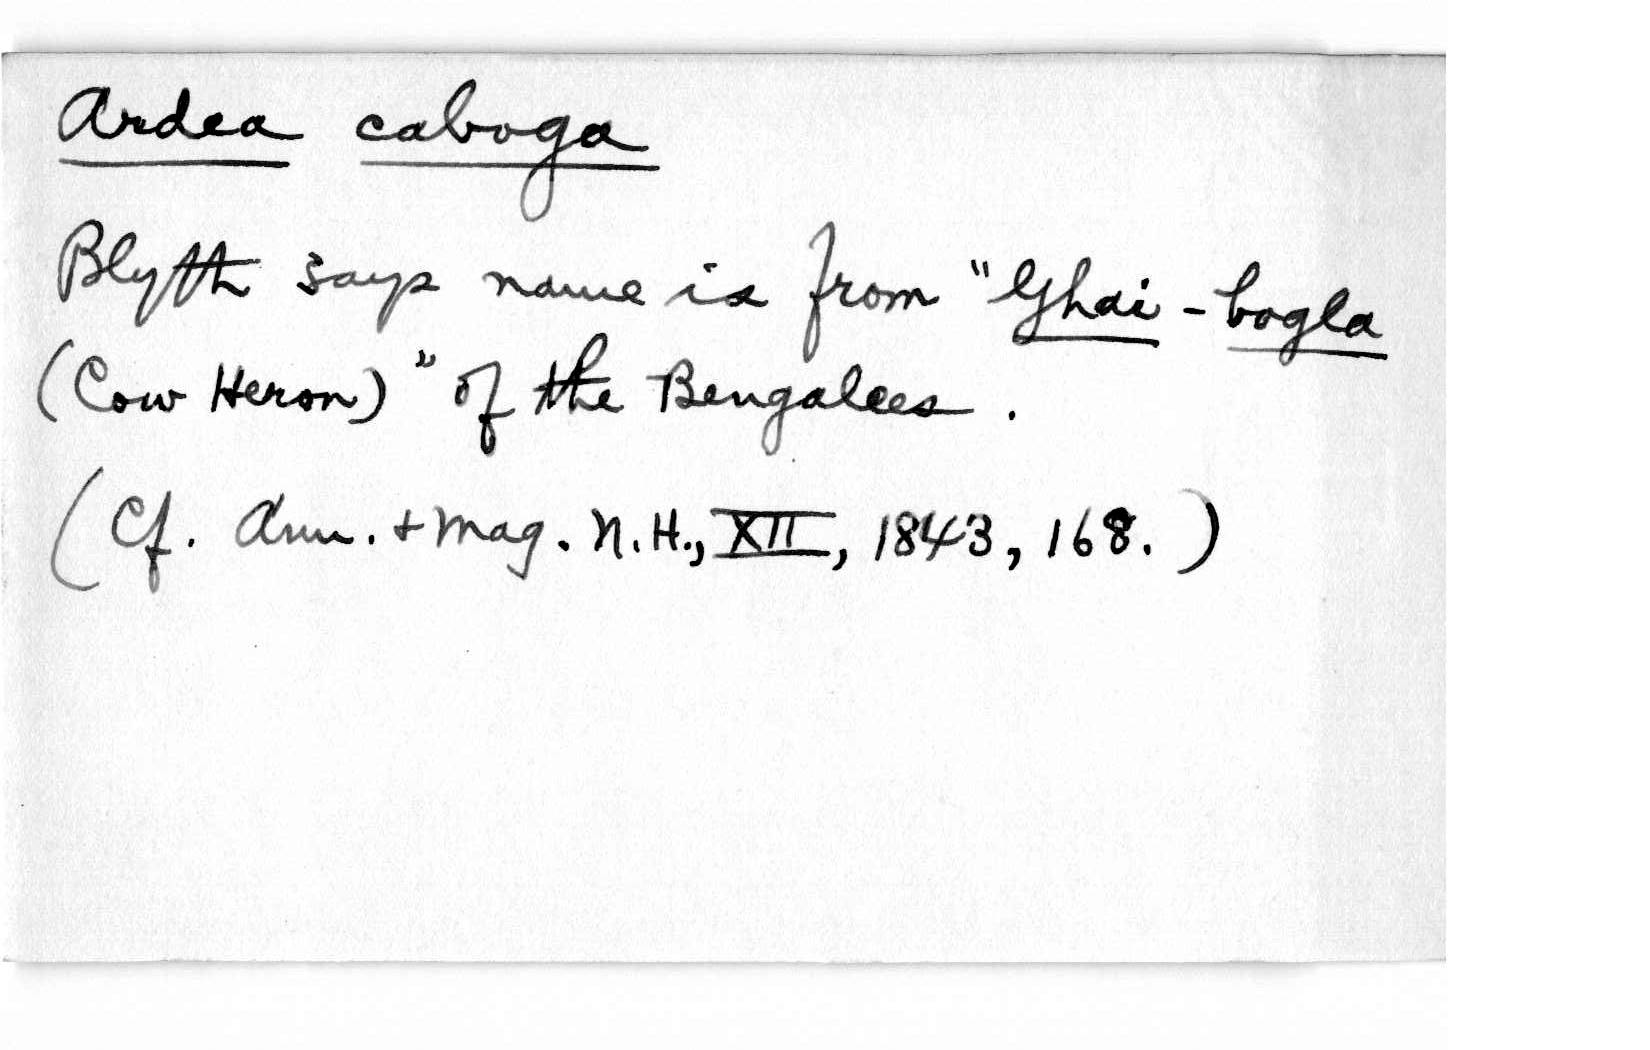 Ardea caboga
Blyth says name is from "Ghai - bogla
(Cow Heron)" of the Bengalees.
(Cf. Ann. + Mag. N.H., XII, 1843, 168.)